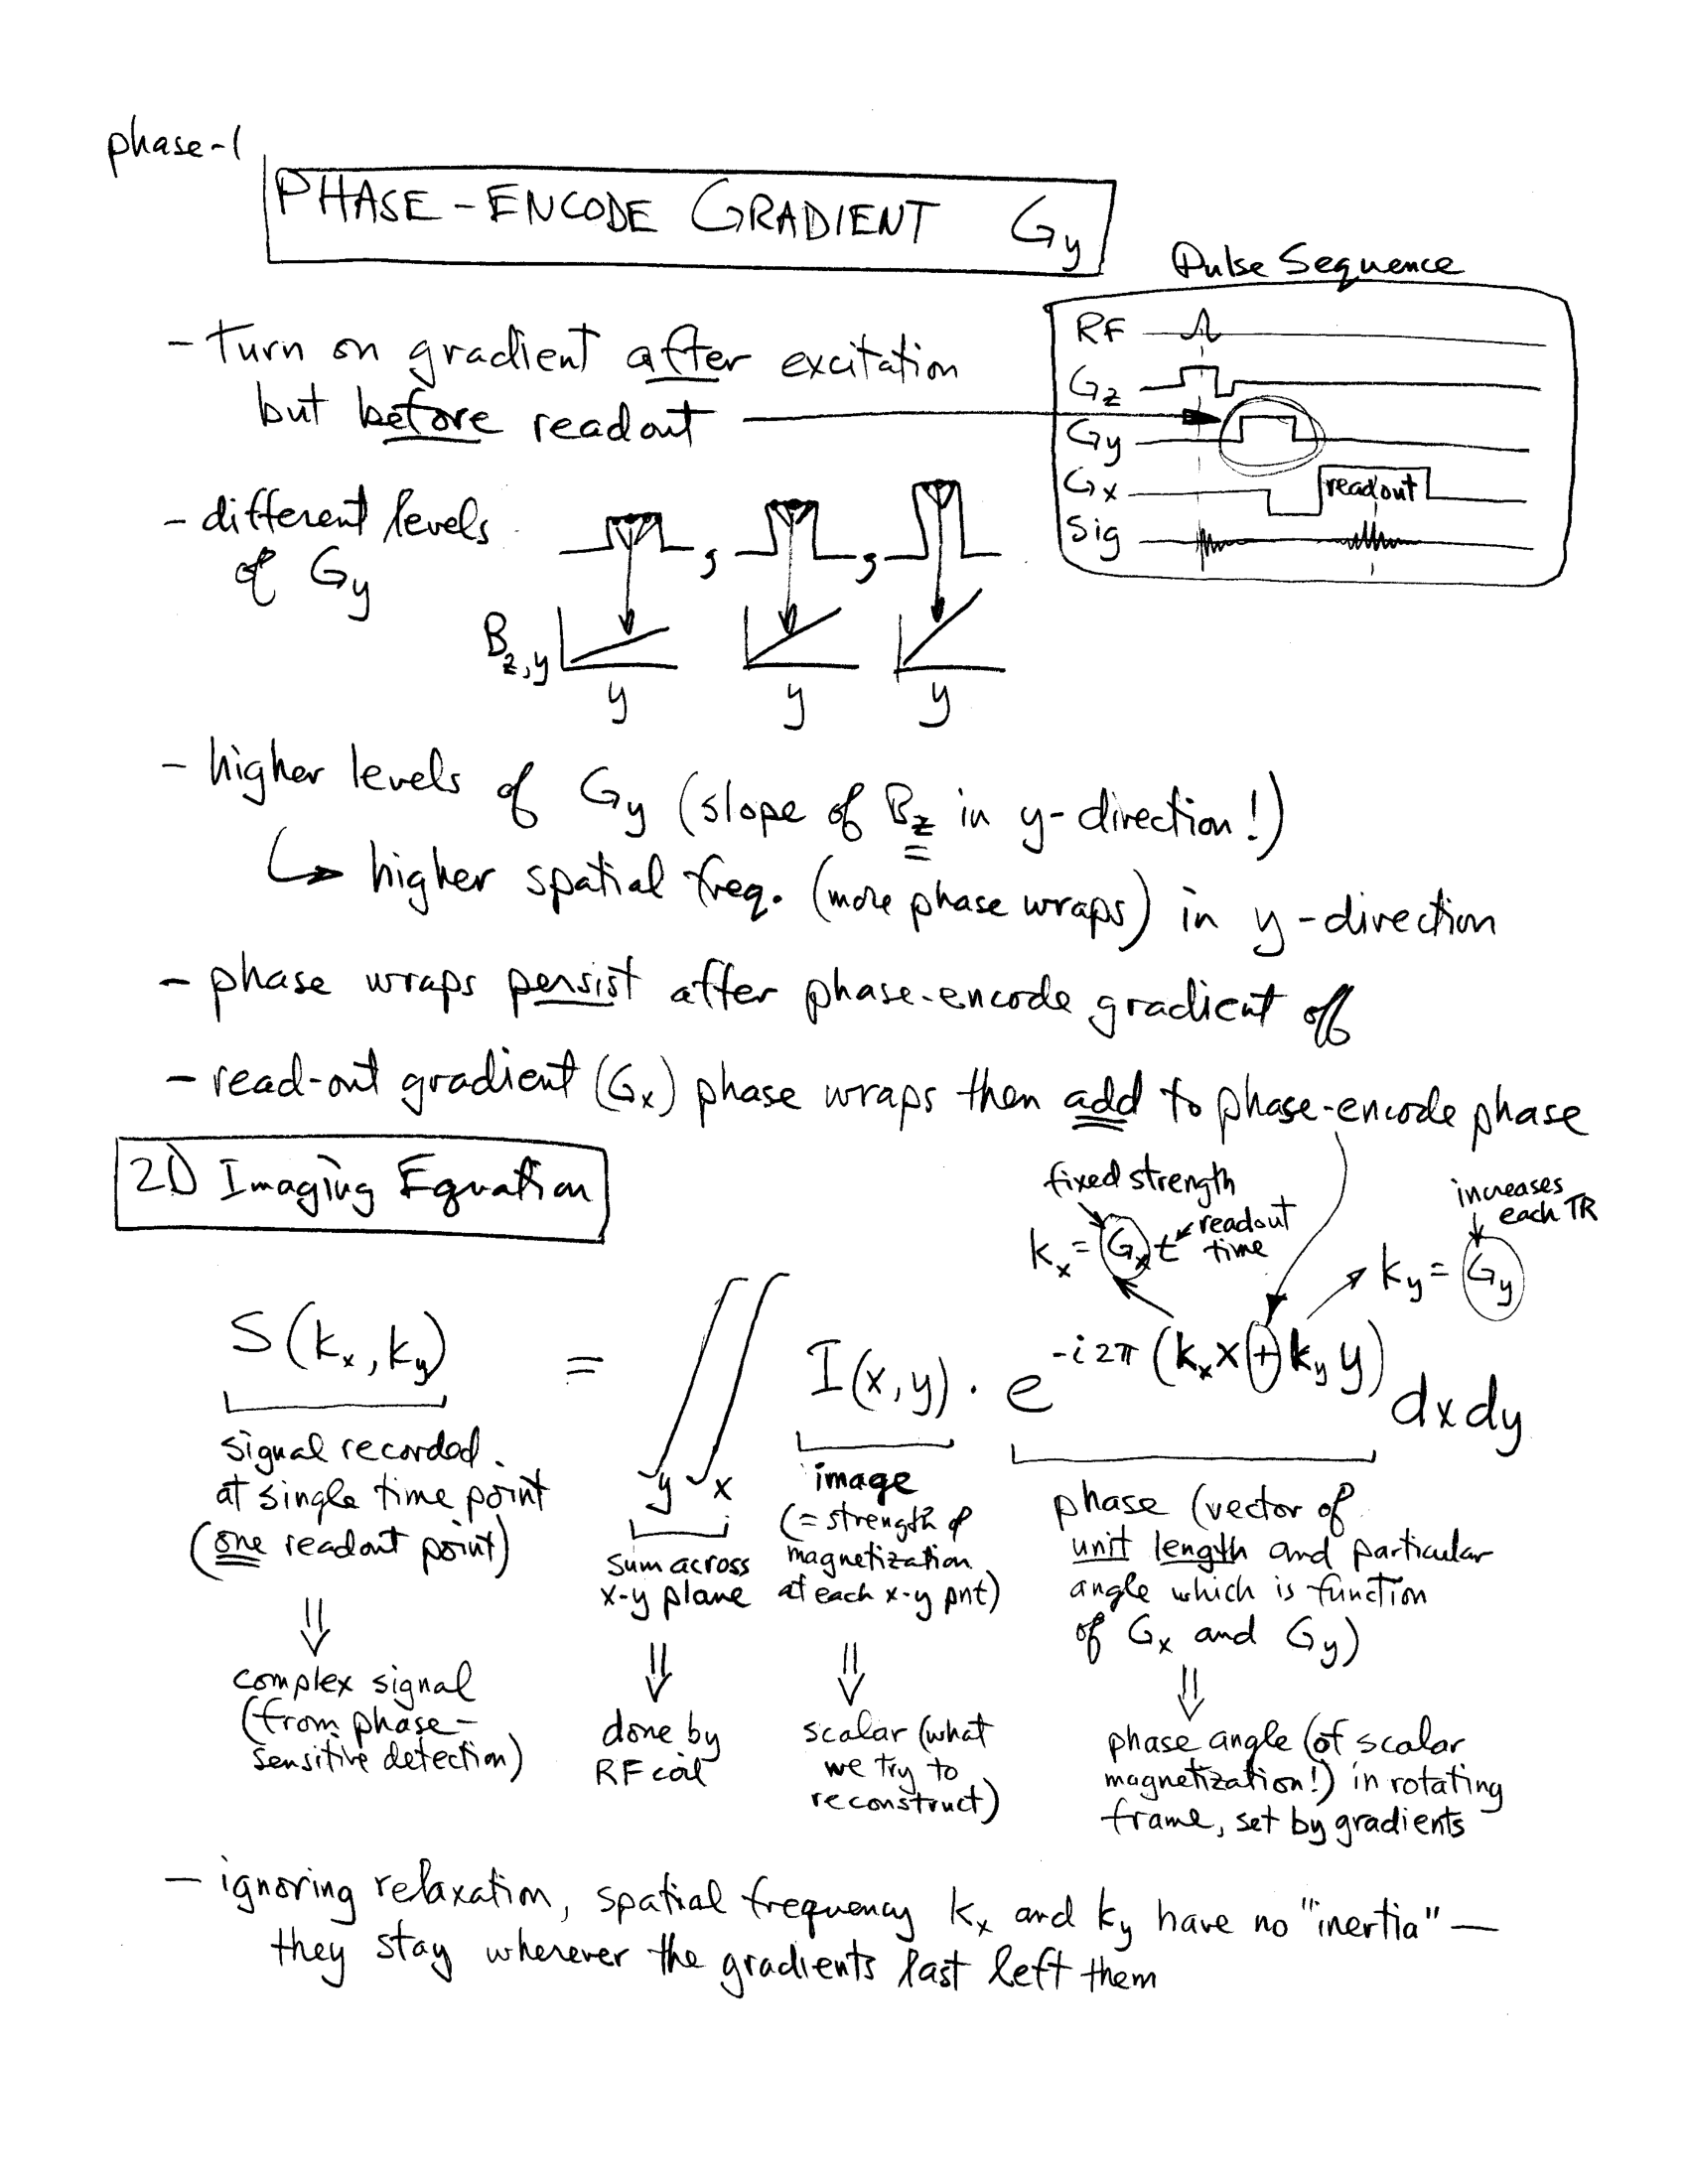 phase-1
PHASE-ENCODE GRADIENT Gy
Pulse Sequence
RF
Gz
Gy
Gx readout
Sig
- turn on gradient after excitation
but before readout
- different levels
of Gy
, ,
Bz,y
y y y
- higher levels of Gy (slope of Bz in y-direction!)
↳ higher spatial freq. (more phase wraps) in y-direction
- phase wraps persist after phase-encode gradient off
- read-out gradient (Gx) phase wraps then add to phase-encode phase
2D Imaging Equation
fixed strength
kx = Gx t readout time
increases each TR
ky = Gy
S(kx, ky) = ∫y ∫x I(x,y) · e^-i2π(kx x + ky y) dx dy
signal recorded
at single time point
(one readout point)
⇓
complex signal
(from phase-
sensitive detection)
sum across
x-y plane
⇓
done by
RF coil
image
(= strength of
magnetization
at each x-y pnt)
⇓
scalar (what
we try to
reconstruct)
phase (vector of
unit length and particular
angle which is function
of Gx and Gy)
⇓
phase angle (of scalar
magnetization!) in rotating
frame, set by gradients
- ignoring relaxation, spatial frequency kx and ky have no "inertia" —
they stay wherever the gradients last left them